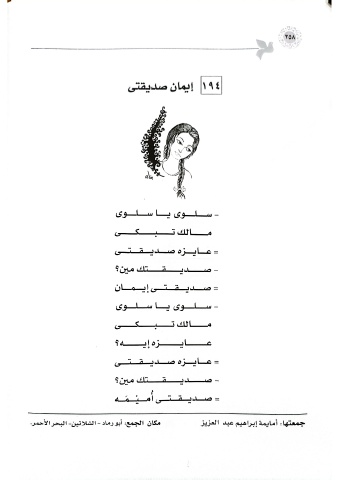 ٢٥٨
١٩٤ إيمان صديقتى
- سلوى يا سلوى
مالك تبكى
= عايزه صديقتى
- صديقتك مين؟
= صديقتى إيمان
- سلوى يا سلوى
مالك تبكى
عايزه إيه؟
= عايزه صديقتى
- صديقتك مين؟
= صديقتى أمنيمه
جمعتها: أمايمة إبراهيم عبد العزيز
مكان الجمع: أبو رماد - الشلاتين - البحر الأحمر.